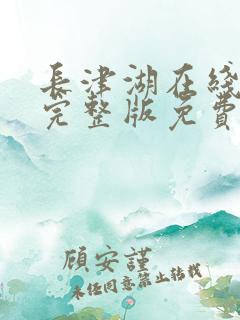 長津湖在綫
完整版免費
顧安謹
未任同意禁止轉載